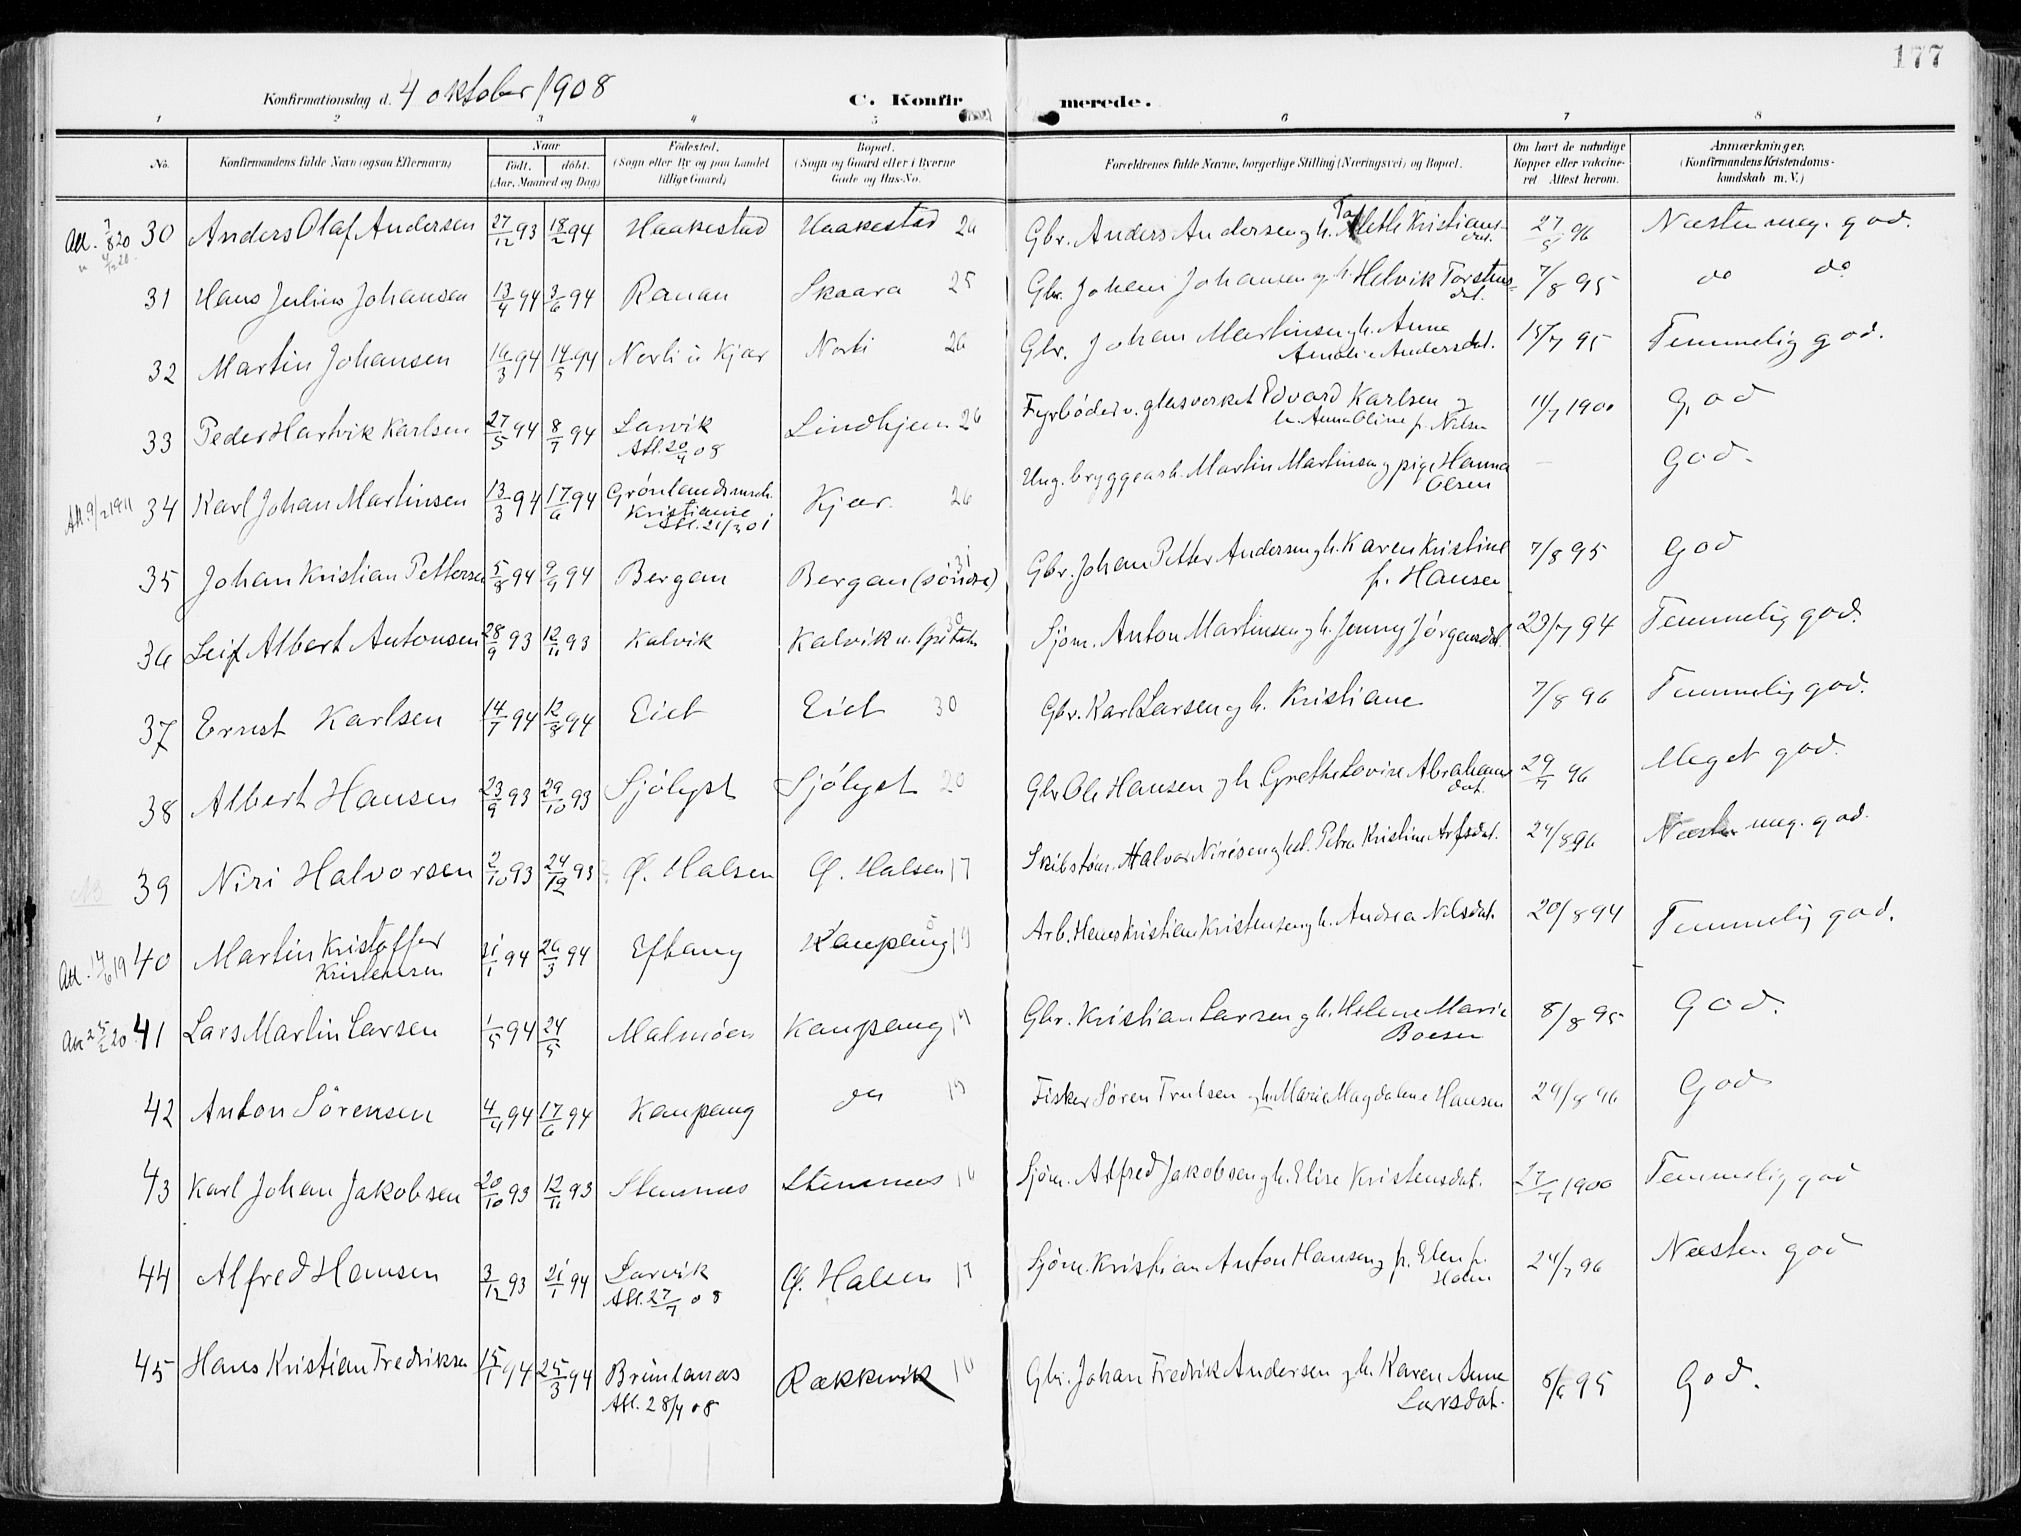 177
Konfirmationsdag d. 4 oktober 1908
C. Konfirmerede.
1 2 3 4 5 6 7 8
No. Konfirmandens fulde Navn (ogsaa Efternavn) Naar født. døbt. (Aar, Maaned og Dag) Fødested. (Sogn eller By og paa Landet tillige Gaard) Bopæl. (Sogn og Gaard eller i Byerne Gade og Hus-No. Forældrenes fulde Navne, borgerlige Stilling (Næringsvei) og Bopæl. Om havt de naturlige Kopper eller vakcineret. Attest herom. Anmærkninger. (Konfirmandens Kristendomskundskab m. V.)
Att. 7/8 20 30 Anders Olaf Andersen 27/12 93 18/2 94 Haakestad Haakestad 26 Gbr. Anders Andersen og h. Kristians- 27/5 96 Næsten meg. god.
dat.
31 Hans Julius Johansen 13/4 94 3/6 94 Ranan Skaara 25 Gbr. Johan Johansen og h. Helvik Torstens- 7/8 95 do do
dat.
32 Martin Johansen 16/3 94 14/5 94 Norli i Kjær Norli 26 Gbr. Johan Martinsen og h. Anna 15/7 95 Temmelig god.
Amalie Andersdat.
33 Peder Hartvik Karlsen 27/5 94 8/7 94 Larvik Lindhjem 26 Fyrbøder v. glasverket Edvard Karlsen og 11/7 1900 God
Att. 20/4 08 h. Anna Oline f. Nilsen
Att. 9/2 1911 34 Karl Johan Martinsen 13/3 94 17/6 94 Grønlands Kjær. 26 Ung. bryggearb. Martin Martinsen og pige Hanna — God.
Kristiania Olsen
Att. 21/3 01
35 Johan Kristian Pettersen 5/8 94 9/9 94 Bergan Bergan (søndre) 31 Gbr. Johan Petter Andersen og h. Karen Kristine 7/8 95 God
f. Hansen
36 Leif Albert Antonsen 28/9 93 12/11 93 Kalvik Kalvik 30 Sjøm. Anton Martinsen og h. Jenny Jørgensdat. 23/7 94 Temmelig god.
37 Ernst Karlsen 14/7 94 12/8 94 Eiet Eiet 30 Gbr. Karl Larsen og h. Kristiane 7/8 96 Temmelig god.
38 Albert Hansen 23/9 93 29/10 93 Sjølyst Sjølyst 20 Gbr Ole Hansen og h. Grethe Lovise Abrahams 29/7 96 Meget god.
dat.
NB 39 Niri Halvorsen 2/10 93 24/12 93 Ø. Halsen Ø. Halsen 17 Skibstøm. Halvor Nirisen og h. Petra Kristine Arfsdat. 24/8 96 Næsten meg. god.
Att. 14/6 19 40 Martin Kristoffer 21/1 94 26/3 94 Eftang Kaupang 19 Arb. Hans Kristian Kristensen og h. Andrea Nilsdat. 20/8 94 Temmelig god.
Kristensen
Att 25/2 20 41 Lars Martin Larsen 1/5 94 24/5 Malmøen Kaupang 19 Gbr. Kristian Larsen og h. Helene Marie 8/8 95 God.
Boesen
42 Anton Sørensen 4/4 94 17/6 94 Kaupang do 19 Fisker Søren Trulsen og h. Marie Magdalene Hansen 24/8 96 God
43 Karl Johan Jakobsen 20/10 93 12/11 93 Stensnæs Stensnæs 16 Sjøm. Alfred Jakobsen og h. Elise Kristensdat. 27/7 1900 Temmelig god
44 Alfred Hansen 3/12 93 21/1 94 Larvik Ø. Halsen 17 Sjøm. Kristian Anton Hansen og f. Elen f. 24/7 96 Næsten god
Att. 27/7 08 Holm
45 Hans Kristian Fredriksen 15/1 94 25/3 94 Brunlanæs Rækkevik 16 Gbr. Johan Fredrik Andersen og h. Karen Anne 8/6 95 God.
Att. 28/4 08 Larsdat.